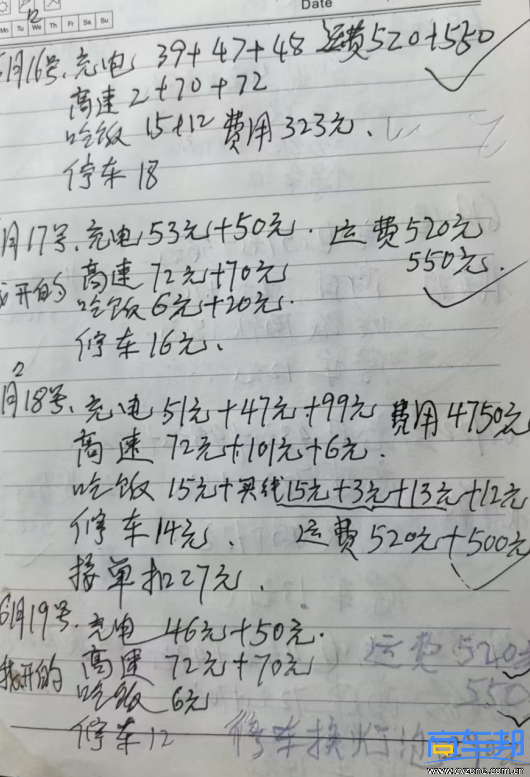 Date
Mo Tu We Th Fr Sa Su
月16号、充电 39+47+48 运费520+550
高速 2+70+72
吃饭 15+12 费用323元、
停车18
月17号、充电53元+50元. 运费520元
我开的 高速 72元+70元 550元.
吃饭 6元+20元.
停车16元、
月18号、充电 51元+47元+99元 费用4750元
高速 72元+101元+6元.
吃饭 15元+买线15元+3元+13元+12元
停车14元、 运费520元+500元
接单扣27元.
6月19号、充电 46元+50元.
我开的 高速 72元+70元 运费520元
吃饭 6元 550
停车12 停车换灯泡
卡车邦
www.cvzone.com.cn